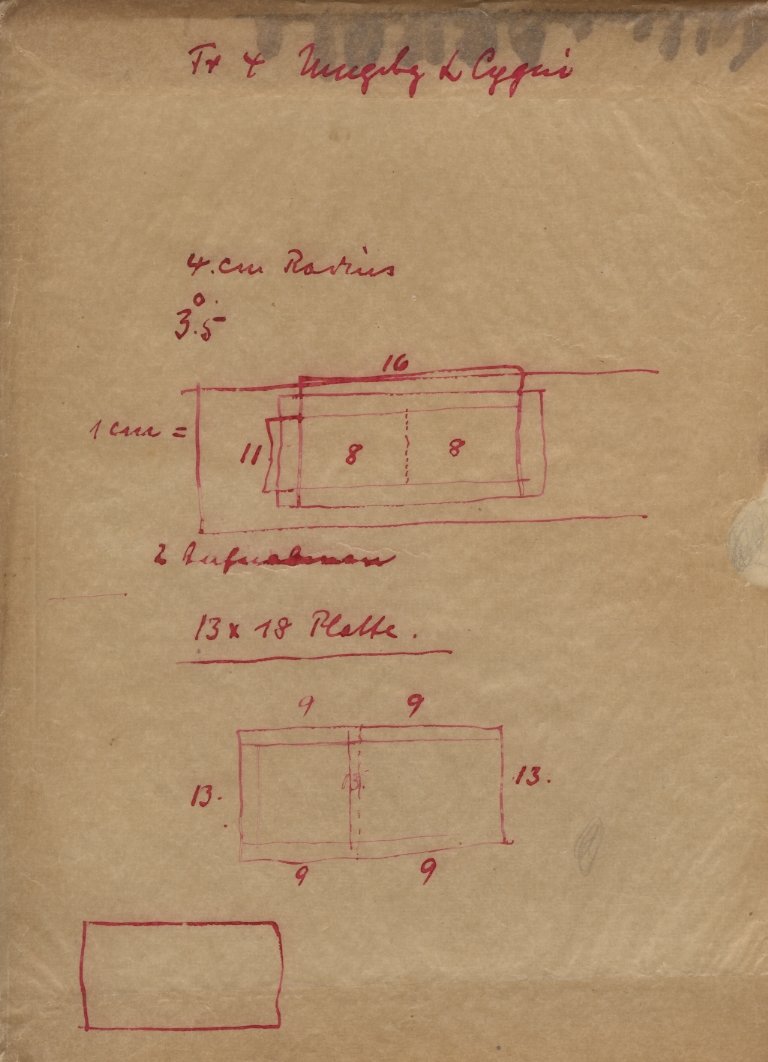 Tr 4 Umgebg α Cygni
4. cm Radius
3°.5
16
1 cm =
11 8 8
2 Aufnahmen
13 x 18 Platte.
9 9
13. 13. 13.
9 9